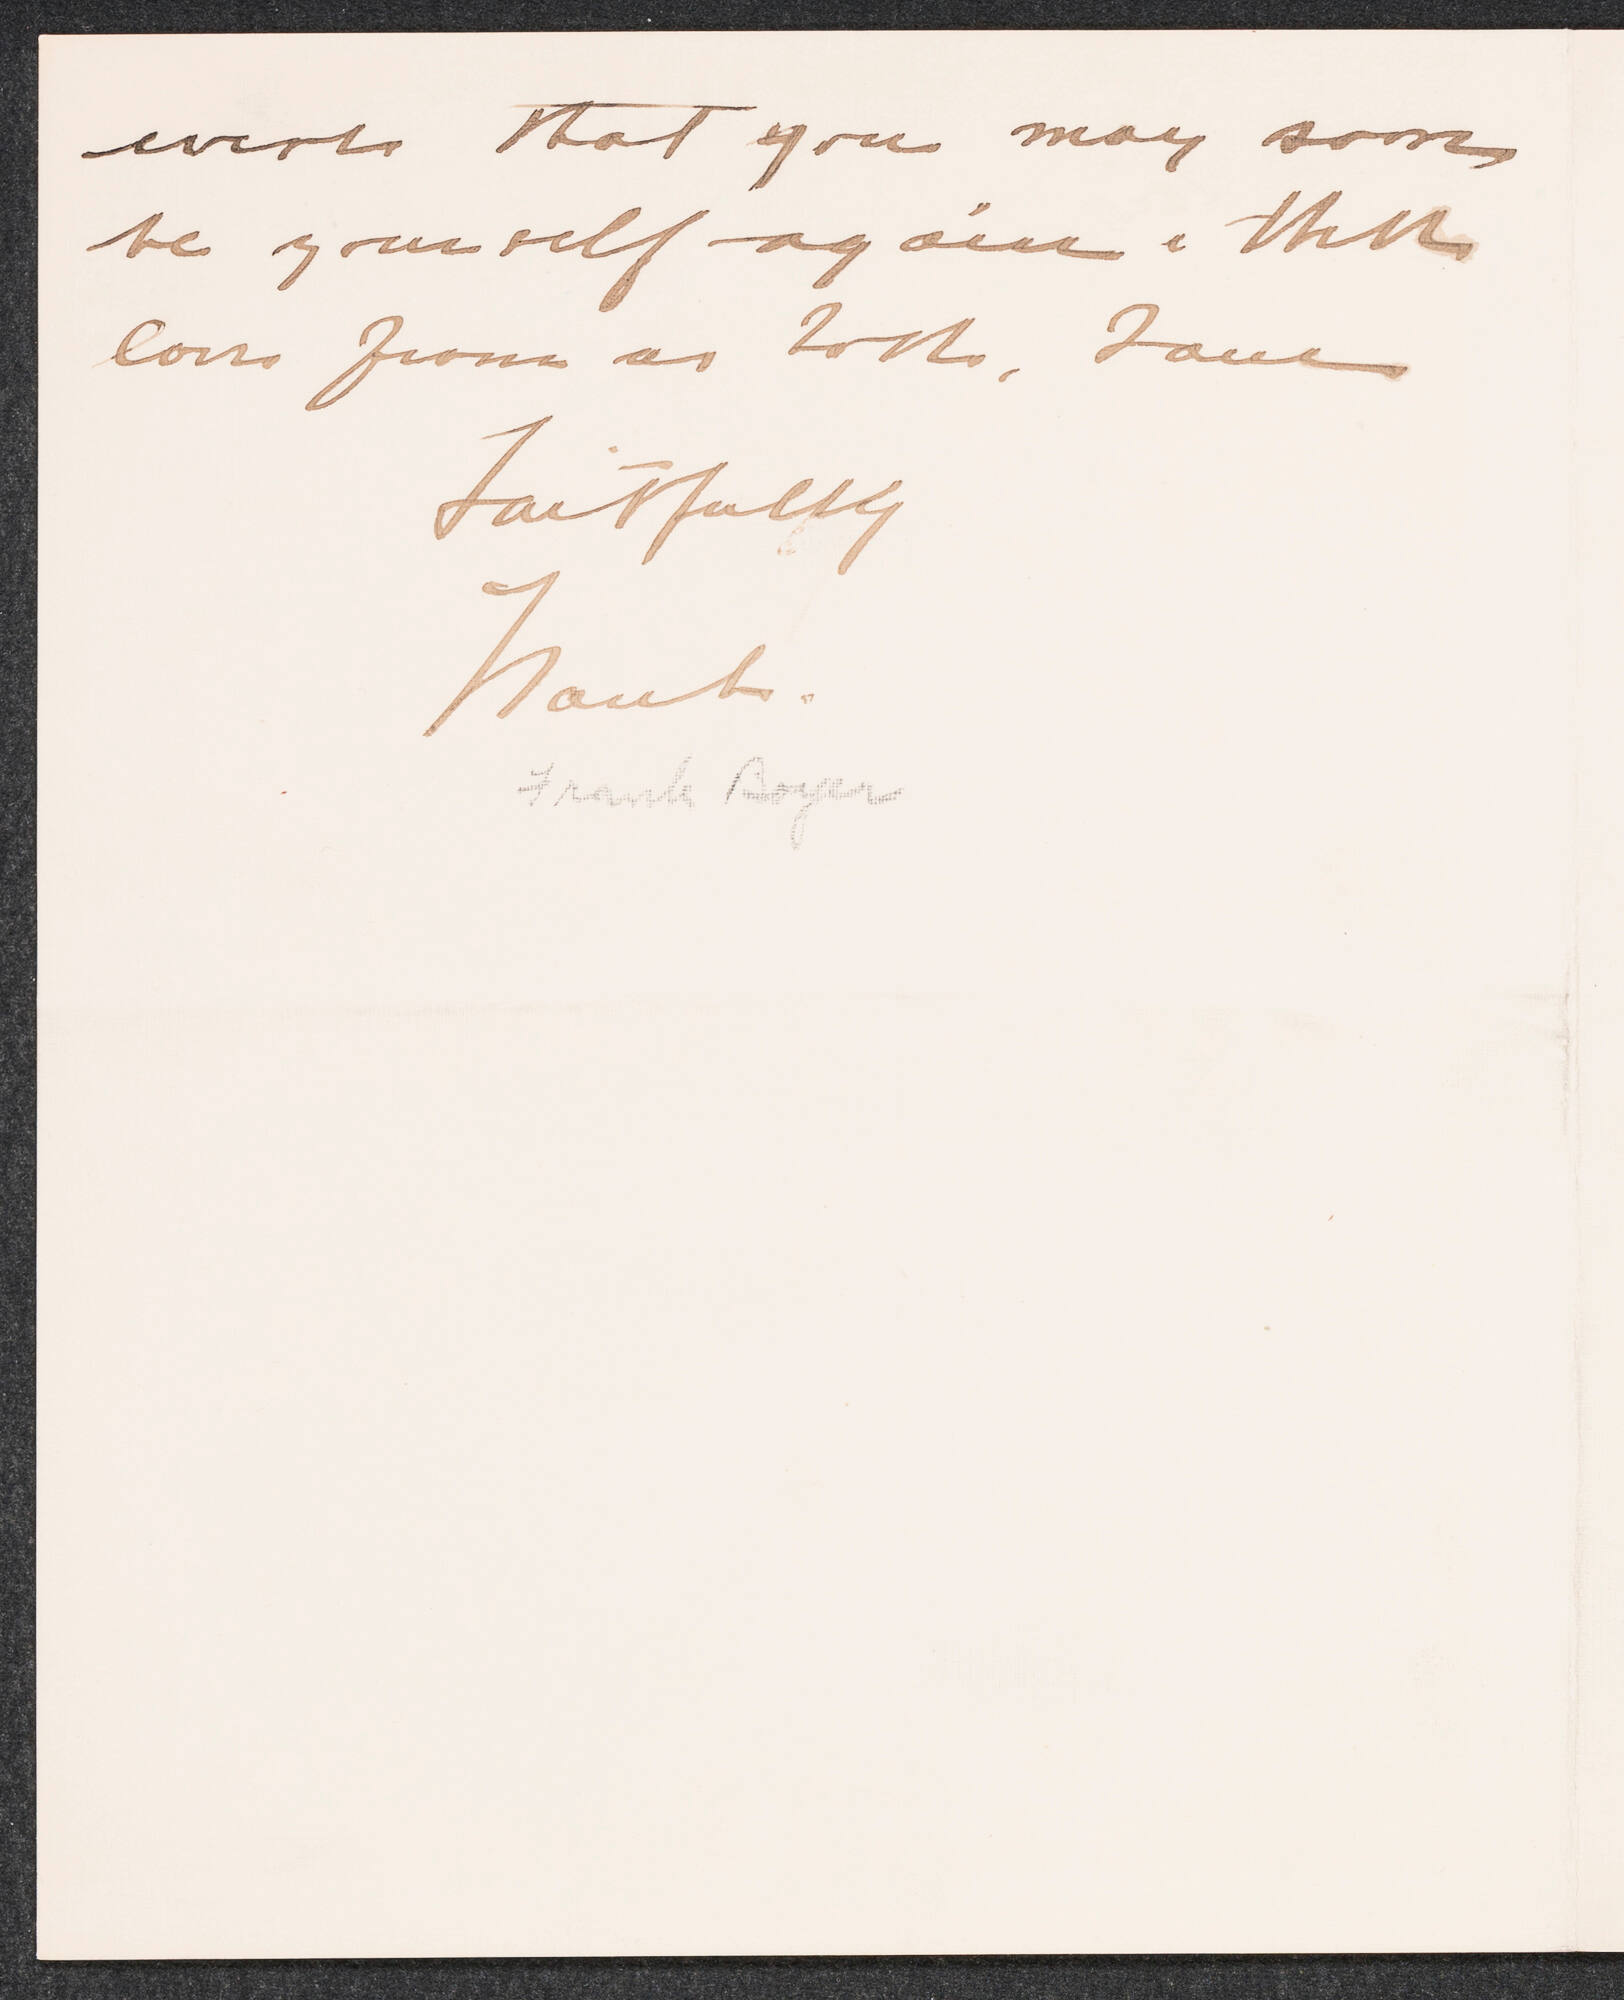 wish that you may soon
be yourself again & with
love from us both, I am
Faithfully
Frank.
Frank Boyer